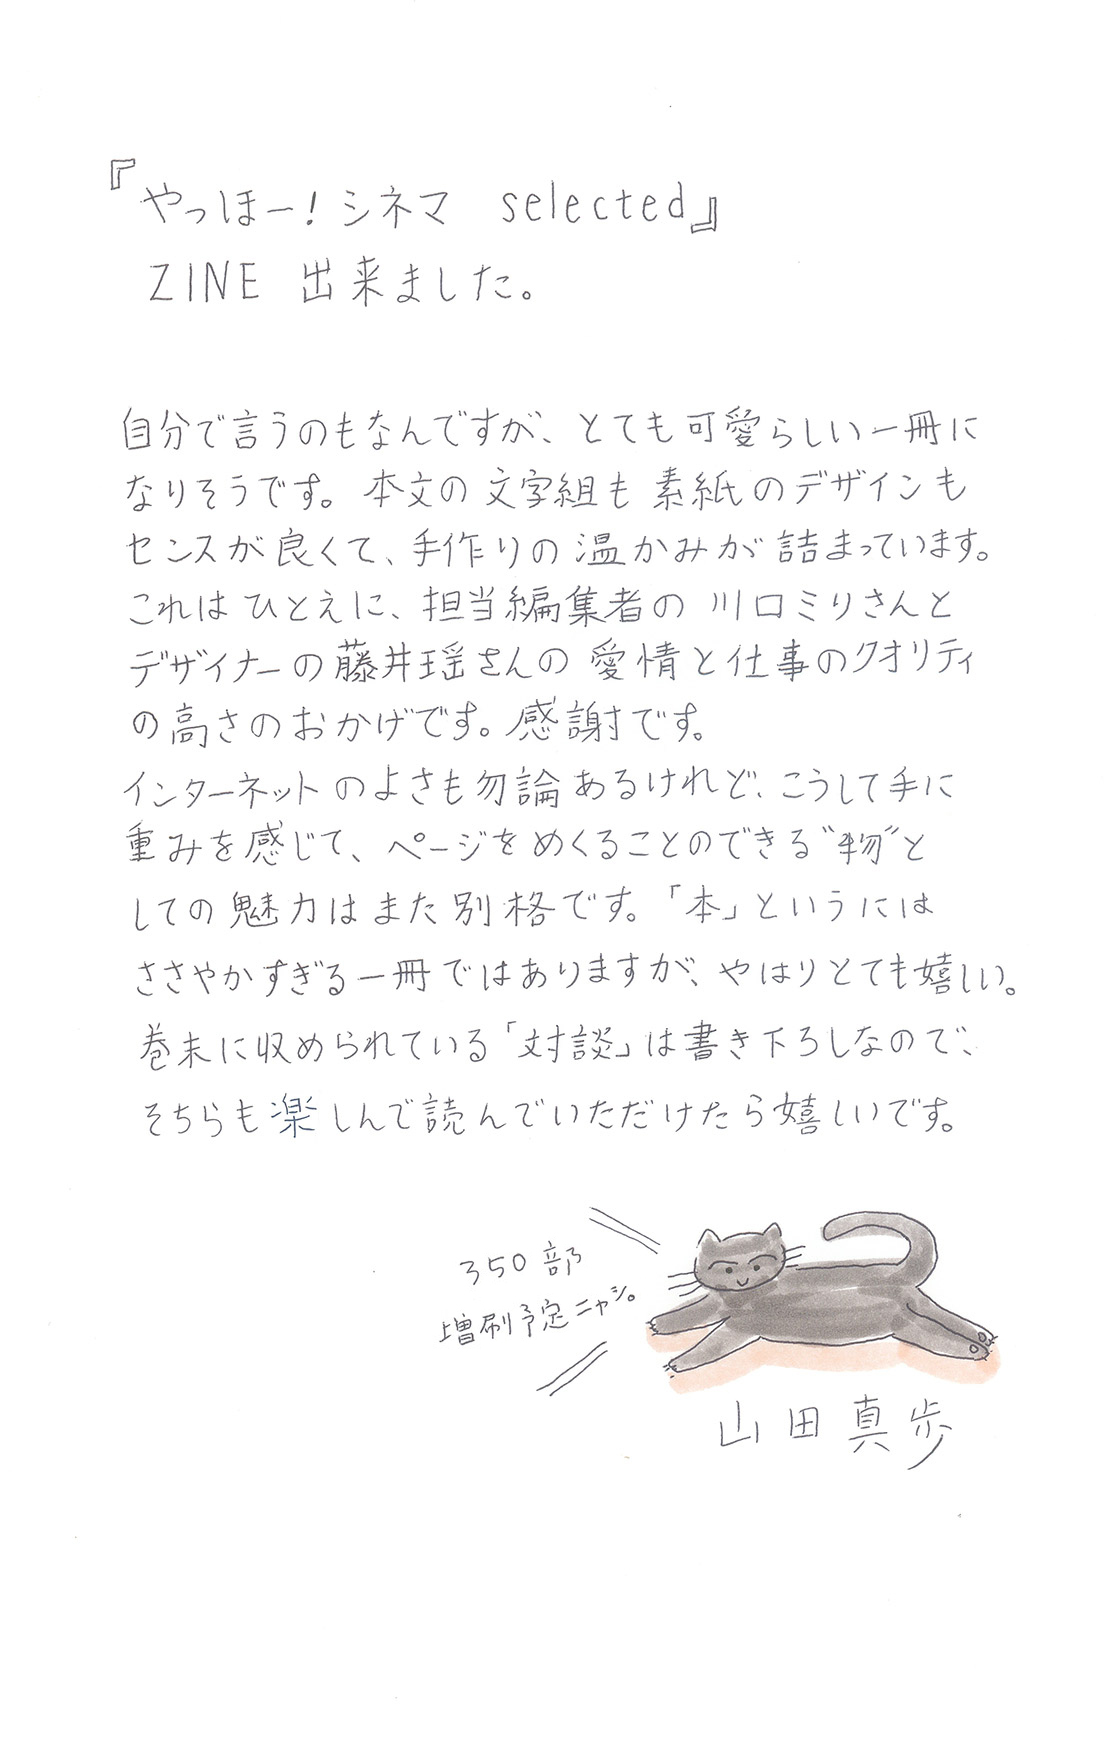 『やっほー！シネマ selected』
ZINE 出来ました。
自分で言うのもなんですが、とても可愛らしい一冊に
なりそうです。本文の文字組も素紙のデザインも
センスが良くて、手作りの温かみが詰まっています。
これはひとえに、担当編集者の川口ミリさんと
デザイナーの藤井瑶さんの愛情と仕事のクオリティ
の高さのおかげです。感謝です。
インターネットのよさも勿論あるけれど、こうして手に
重みを感じて、ページをめくることのできる“物”と
しての魅力はまた別格です。「本」というには
ささやかすぎる一冊ではありますが、やはりとても嬉しい。
巻末に収められている「対談」は書き下ろしなので、
そちらも楽しんで読んでいただけたら嬉しいです。
350部
増刷予定ニャシ。
山田真歩